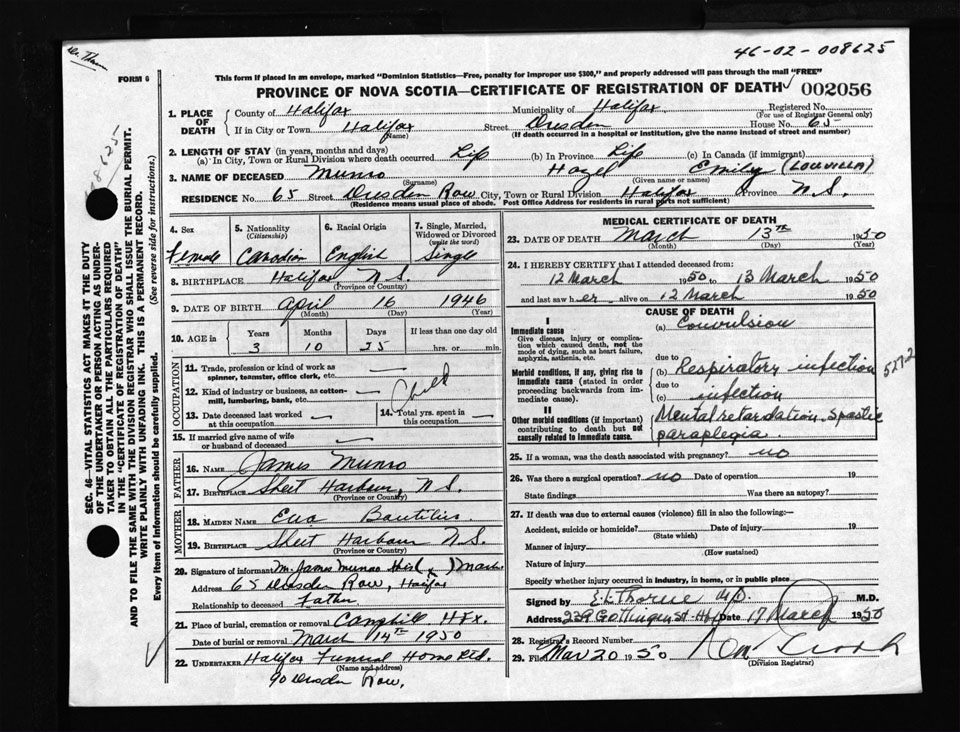 46-02-008625
FORM 6
This form if placed in an envelope, marked "Dominion Statistics—Free, penalty for improper use $300," and properly addressed will pass through the mail "FREE"
PROVINCE OF NOVA SCOTIA—CERTIFICATE OF REGISTRATION OF DEATH 002056
SEC. 46—VITAL STATISTICS ACT MAKES IT THE DUTY
OF THE UNDERTAKER OR PERSON ACTING AS UNDER-
TAKER TO OBTAIN ALL THE PARTICULARS REQUIRED
IN THE "CERTIFICATE OF REGISTRATION OF DEATH"
AND TO FILE THE SAME WITH THE DIVISION REGISTRAR WHO SHALL ISSUE THE BURIAL PERMIT.
WRITE PLAINLY WITH UNFADING INK. THIS IS A PERMANENT RECORD.
Every item of Information should be carefully supplied. (See reverse side for instructions.)
1. PLACE OF DEATH
County of Halifax Municipality of Halifax Registered No.
(For use of Registrar General only)
If in City or Town Halifax Street Dresden House No. 65
(Name) (If death occurred in a hospital or institution, give the name instead of street and number)
2. LENGTH OF STAY (in years, months and days)
(a) In City, Town or Rural Division where death occurred Life (b) In Province Life (c) In Canada (if immigrant)
3. NAME OF DECEASED Munro Hazel Emily (LOUVILLA)
(Surname) (Given name or names)
RESIDENCE No. 65 Street Dresden Row City, Town or Rural Division Halifax Province N.S.
(Residence means usual place of abode. Post Office Address for residents in rural parts not sufficient)
4. Sex Female
5. Nationality (Citizenship) Canadian
6. Racial Origin English
7. Single, Married, Widowed or Divorced (write the word) Single
8. BIRTHPLACE Halifax N.S.
(Province or Country)
9. DATE OF BIRTH April 16 1946
(Month) (Day) (Year)
10. AGE in Years 3 Months 10 Days 25 If less than one day old hrs. or min.
OCCUPATION
11. Trade, profession or kind of work as spinner, teamster, office clerk, etc. —
12. Kind of industry or business, as cotton-mill, lumbering, bank, etc. Child
13. Date deceased last worked at this occupation —
14. Total yrs. spent in this occupation —
15. If married give name of wife or husband of deceased —
FATHER
16. NAME James Munro
17. BIRTHPLACE Sheet Harbour, N.S.
(Province or Country)
MOTHER
18. MAIDEN NAME Eva Boutilier
19. BIRTHPLACE Sheet Harbour N.S.
(Province or Country)
20. Signature of informant Mr. James Munro
Address 65 Dresden Row, Halifax
Relationship to deceased Father
21. Place of burial, cremation or removal Camphill Hfx.
Date of burial or removal March 14th 1950
22. UNDERTAKER Halifax Funeral Home Ltd.
(Name and address)
90 Dresden Row.
MEDICAL CERTIFICATE OF DEATH
23. DATE OF DEATH March 13th 1950
(Month) (Day) (Year)
24. I HEREBY CERTIFY that I attended deceased from:
12 March 1950 to 13 March 1950
and last saw her alive on 12 March 1950
CAUSE OF DEATH
I
Immediate cause
Give disease, injury or complication which caused death, not the mode of dying, such as heart failure, asphyxia, asthenia, etc.
(a) Convulsion
due to
Morbid conditions, if any, giving rise to immediate cause (stated in order proceeding backwards from immediate cause).
(b) Respiratory infection
due to
(c) infection
5272
II
Other morbid conditions (if important) contributing to death but not causally related to immediate cause.
Mental retardation. Spastic
paraplegia.
25. If a woman, was the death associated with pregnancy? no
26. Was there a surgical operation? no Date of operation 19
State findings Was there an autopsy?
27. If death was due to external causes (violence) fill in also the following:—
Accident, suicide or homicide? Date of injury 19
(State which)
Manner of injury
(How sustained)
Nature of injury
Specify whether injury occurred in industry, in home, or in public place
Signed by E L Thorne M.D. M.D.
Address 239 Gottingen St. Hfx Date 17 March 1950
28. Registrar's Record Number
29. Filed Mar 20 1950
(Division Registrar)